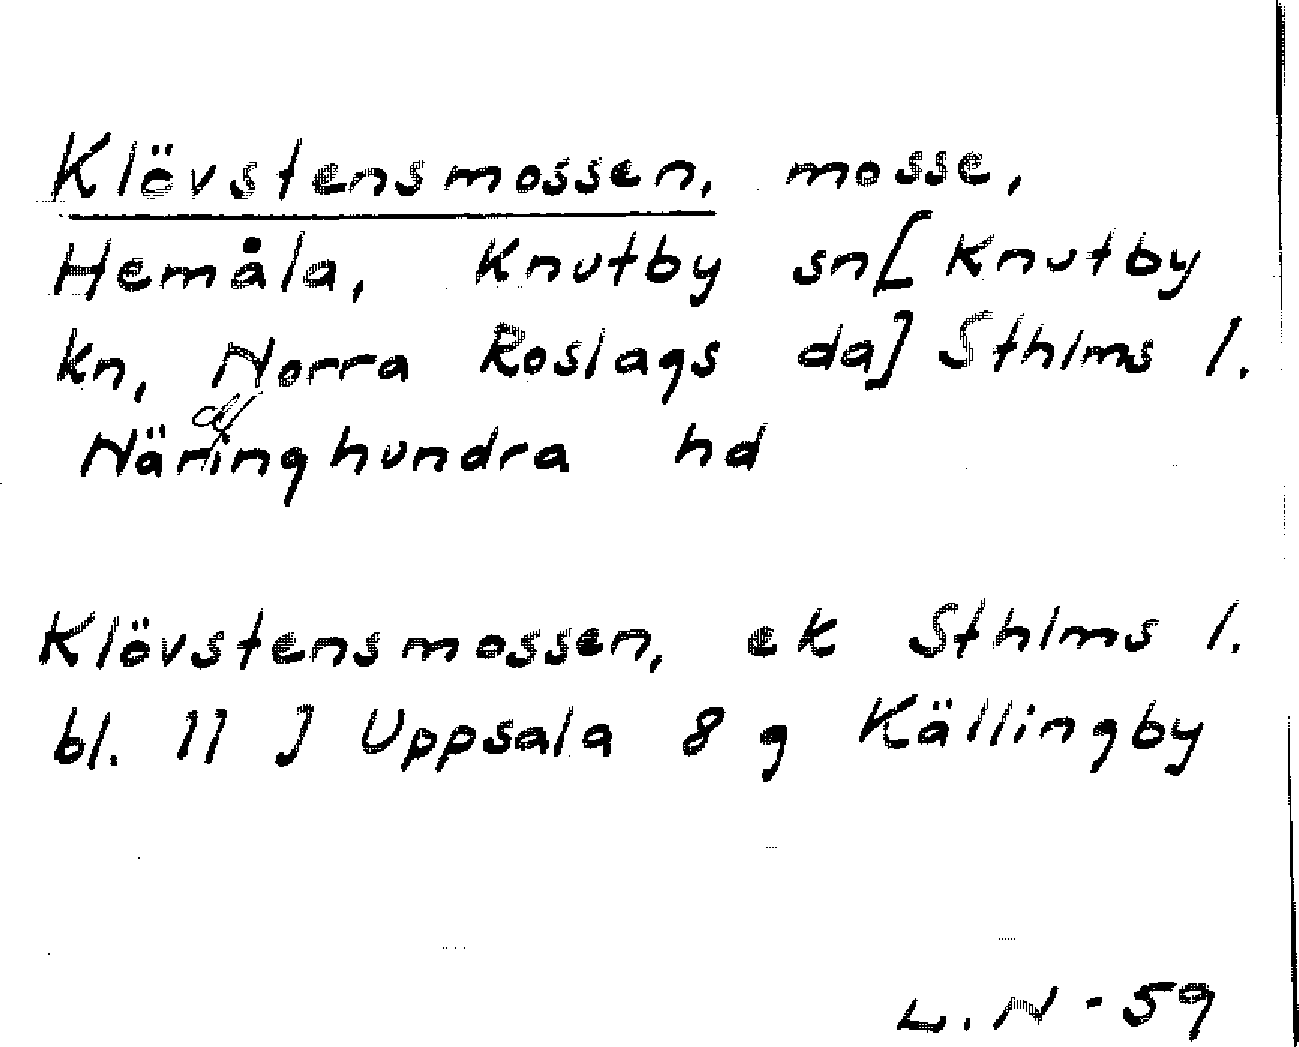 Klövstensmossen, mosse,
Hemåla, Knutby sn[Knutby
kn, Norra Roslags da] Sthlms l.
Närdinghundra hd
Klövstensmossen, ek Sthlms l.
bl. 11 J Uppsala 8 g Källingby
L. N - 59